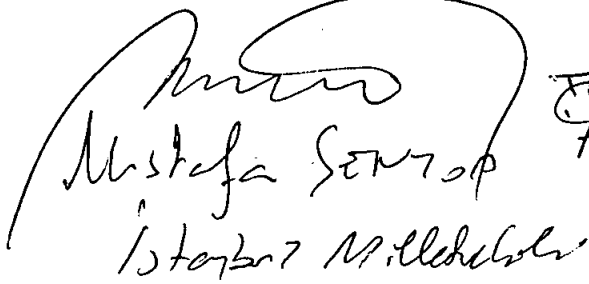 Mustafa ŞENTOP
İstanbul Milletvekili